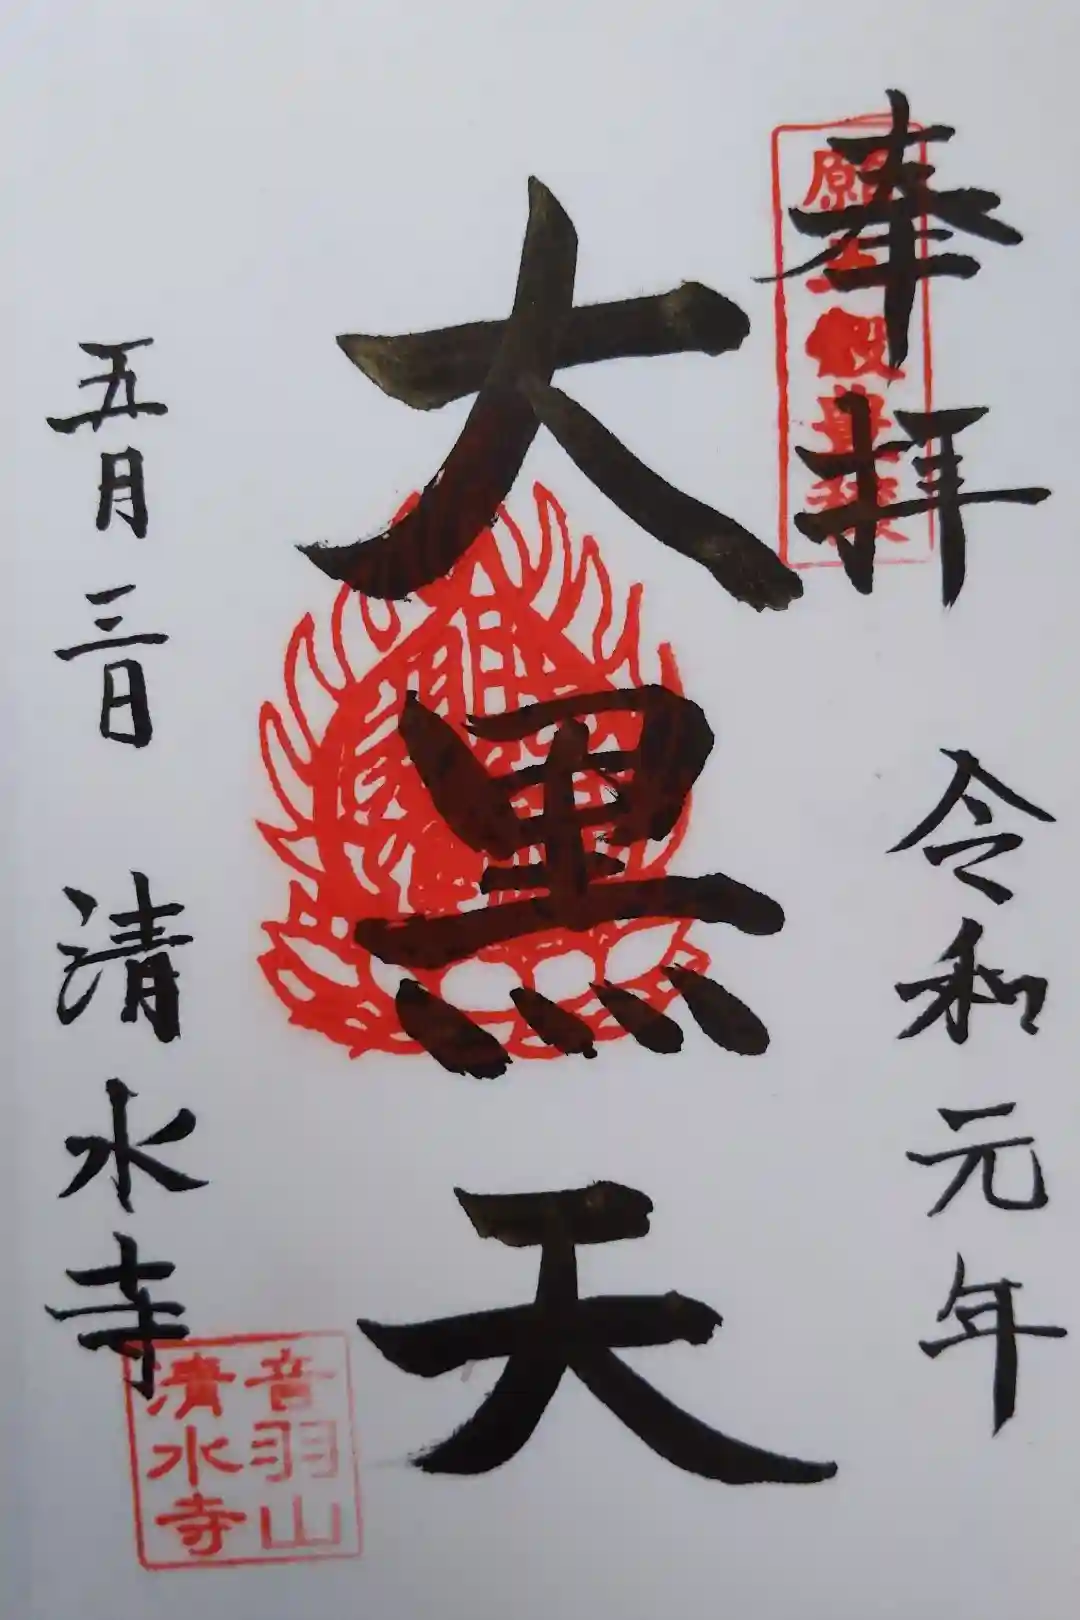 奉拝
令和元年
大黒天
五月三日
清水寺
音羽山
清水寺